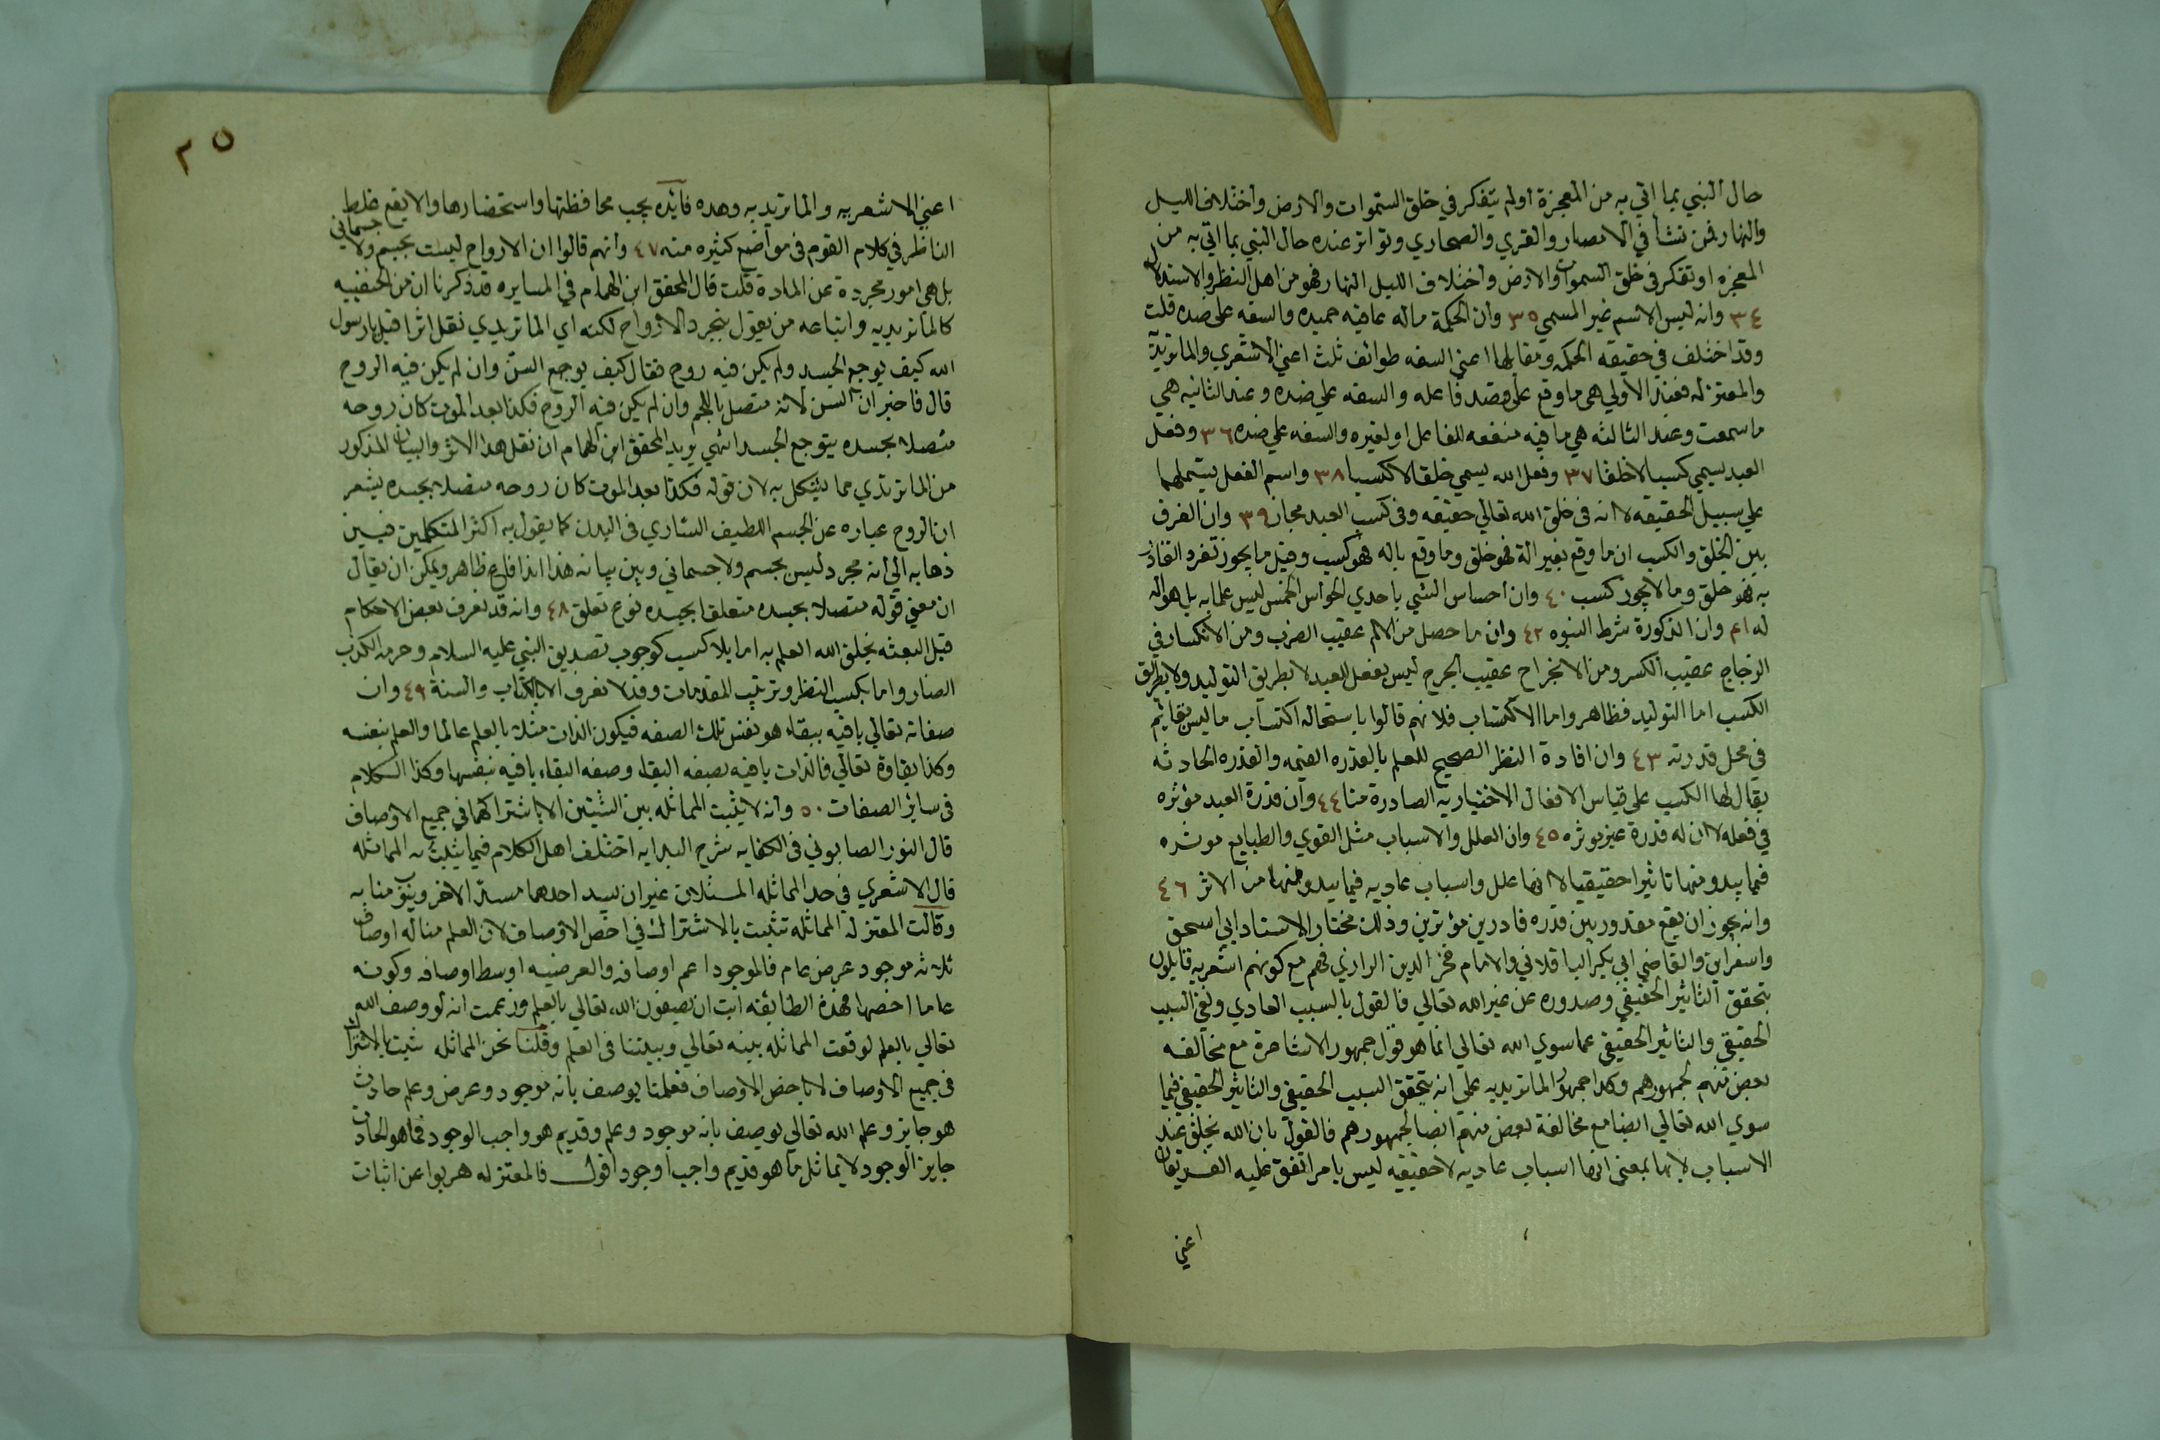 حال النبي بما اتي به من المعجزة اولم يتفكر في خلق السموات والارض واختلاف الليل
والنهار فمن نشأ في الامصار والقري والصحاري وتواتر عنده حال النبي بما اتي به من
المعجزه او تفكر في خلق السموات والارض واختلاف الليل النهار فهو من اهل النظر والاستدلال
٣٤ وانه ليس الاسم غير المسمي ٣٥ وان الحكمة ماله عاقبه حميده والسفه علي ضده قلت
وقد اختلف في حقيقه الحكمه ومقابلها اعني السفه طوائف ثلث اعني الاشعري والماتريدية
والمعتزله فعند الاولي هي ما وقع علي قصد فاعله والسفه علي ضده وعند الثانيه هي
ما سمعت وعند الثالثه هي ما فيه منفعه للفاعل او لغيره والسفه علي ضده ٣٦ وفعل
العبد يسمي كسبا لا خلقا ٣٧ وفعل الله يسمي خلقا لا كسبا ٣٨ واسم الفعل يشملهما
علي سبيل الحقيقه لا انه في خلق الله تعالي حقيقه وفي كسب العبد مجاز ٣٩ وان الفرق
بين الخلق والكسب ان ما وقع بغير الة فهو خلق وما وقع باله هو كسب وقيل ما يجوز تفرد القادر
به فهو خلق وما لا يجوز كسب ٤٠ وان احساس الشي باحدي الحواس الخمس ليس علما به بل هو اله
له ٤١ وان الذكورة شرط النبوه ٤٢ وان ما حصل من الالم عقيب الضرب ومن الانكسار في
الزجاج عقيب الكسر ومن الانجراح عقيب الجرح ليس بفعل العبد لا بطريق التوليد ولا بطريق
الكسب اما التوليد فظاهر واما الاكتساب فلانهم قالوا باستحاله اكتساب ما ليس بقائم
في محل قدرته ٤٣ وان افادة النظر الصحيح للعلم بالقدره القديمه والقدره الحادثه
يقال لها الكسب علي قياس الافعال الاختياريه الصادرة منا ٤٤ وان قدرة العبد مؤثره
في فعله لا ان له قدرة غير موثره ٤٥ وان العلل والاسباب مثل القوي والطبايع موثره
فيما يبدو منها تاثيرا حقيقيا لا انها علل واسباب عاديه فيما يبدو منها من الاثر ٤٦
وانه يجوز ان يقع مقدور بين قدره قادرين مؤثرين وذلك مختار الاستاد ابي اسحق
واسفراين والقاضي ابي بكر الباقلاني والامام فخر الدين الرازي فهم مع كونهم اشعريه قايلون
بتحقق التاثير الحقيقي وصدوره عن غير الله تعالي فالقول بالسبب العادي ونفي السبب
الحقيقي والتاثير الحقيقي عما سوي الله تعالي انما هو قول جمهور الاشاعرة مع مخالفه
بعض منهم لجمهورهم وكذا جمهور الماتريديه علي انه بتحقق السبب الحقيقي والتاثير الحقيقي فيما
سوي الله تعالي ايضا مع مخالفة بعض منهم ايضا لجمهورهم فالقول بان الله يخلق عند
الاسباب لا بها بمعني انها اسباب عاديه لا حقيقيه ليس بامر اتفق عليه الفريقان
اعني
٢٥
اعني الاشعريه والماتريديه وهده فائده يجب محافظتها واستحضارها والا يقع غلط
الناظر في كلام القوم في مواضع كثيره منه ٤٧ وانهم قالوا ان الارواح ليست بجسم ولا جسماني
بل هي امور مجردة عن المادة قلت قال المحقق ابن الهمام في المسايره قد ذكرنا ان من الحنفييه
كالماتريديه واتباعه من يقول بتجرد الارواح لكنه اي الماتريدي نقل اثرا قيل يا رسول
الله كيف يوجع الجسد ولم يكن فيه روح فقال كيف يوجع السن وان لم يكن فيه الروح
قال فاخبر ان السن لانه متصل باللحم وان لم يكن فيه الروح فكذا بعد الموت كان روحه
متصلا بجسده يتوجع الجسد انتهي يريد المحقق ابن الهمام ان نقل هدا الاثر والبيان المذكور
من الماتريدي مما يشكل به لان قوله فكذا بعد الموت كان روحه متصلا بجسده يشعر
ان الروح عباره عن الجسم اللطيف الساري في البدن كما يقول به اكثر المتكلمين فبين
ذهابه الي انه مجرد ليس بجسم ولا جسماني وبين بيانه هذا تدافع ظاهر ويمكن ان يقال
ان معني قوله متصلا بجسده متعلقا بجسده نوع تعلق ٤٨ وانه قد نعرف بعض الاحكام
قبل البعثه بخلق الله العلم به اما بلا كسب كوجوب تصديق النبي عليه السلام وحرمه الكذب
الضار واما بكسب النظر وترتيب المقدمات وقد لا نعرف الا بالكتاب والسنة ٤٩ وان
صفاته تعالي باقيه ببقاء هو نفس تلك الصفه فيكون الذات مثلا بالعلم عالما والعلم بنفسه
وكذا بقاؤه تعالي فالذات باقيه بصفه البقاء وصفه البقاء باقيه بنفسها وكذا الكلام
في سائر الصفات ٥٠ وانه لا يثبت المماثله بين الشيئين الا باشتراكهما في جميع الاوصاف
قال النور الصابوني في الكفايه شرح البدايه اختلف اهل الكلام فيما يثبت به المماثله
قال الاشعري في حد المماثله المسئلان غيران يسد احدهما مسد الاخر وينوب منابه
وقالت المعتزلة المماثله تثبت بالاشتراك في اخص الاوصاف لان العلم منا له اوصاف
ثلاثه موجود عرض عام فالموجود اعم اوصافه والعرضيه اوسط اوصافه وكونه
عاما اخصها فهذه الطائفه ابت ان يصيفون الله تعالي بالعلم وزعمت انه لو وصف الله
تعالي بالعلم لوقعت المماثله بينه تعالي وبيننا في العلم وقلنا نحن المماثله تثبت بالاشتراك
في جميع الاوصاف لا باخص الاوصاف فعلمنا يوصف بانه موجود وعرض وعلم حادث
هو جايز وعلم الله تعالي يوصف بانه موجود وعلم وقديم هو واجب الوجود فما هو الحادث
جايز الوجود لا يماثل ما هو قديم واجب اوجود اقول فالمعتزله هربوا عن اثبات